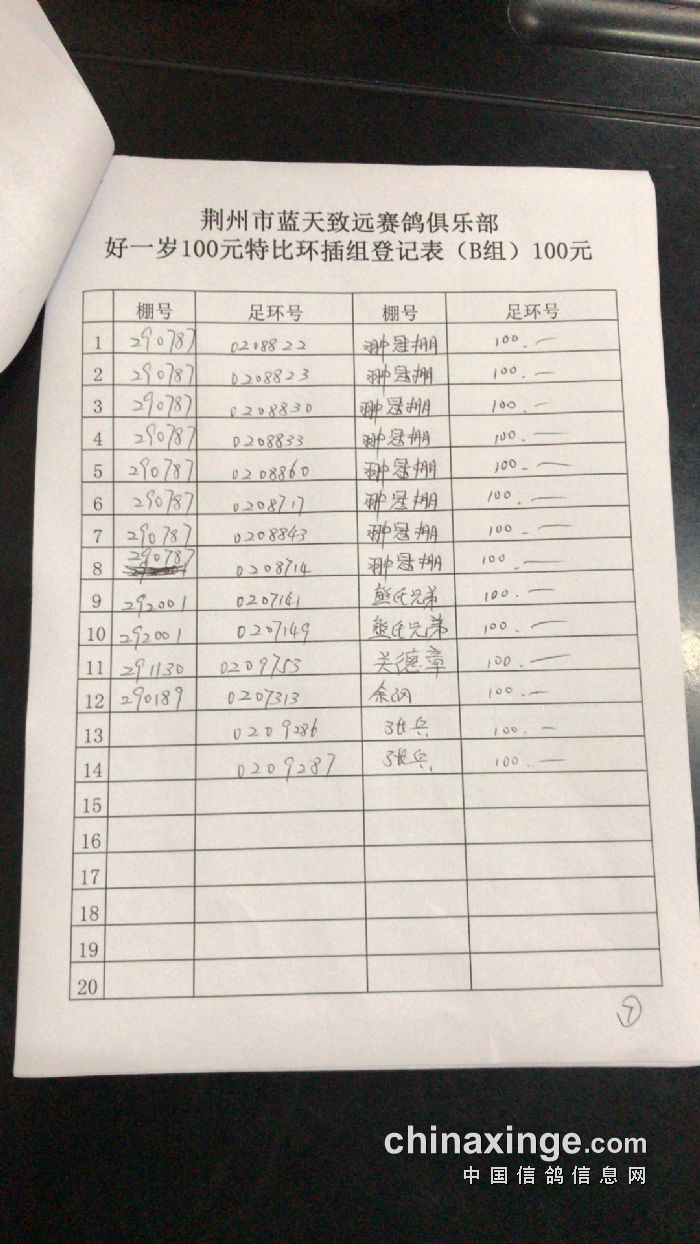 荆州市蓝天致远赛鸽俱乐部
好一岁100元特比环插组登记表（B组）100元
棚号 足环号 棚号 足环号
1 290787 0208822 翀冠棚 100.—
2 290787 0208823 翀冠棚 100.—
3 290787 0208830 翀冠棚 100.—
4 290787 0208833 翀冠棚 100.—
5 290787 0208860 翀冠棚 100.—
6 290787 0208717 翀冠棚 100.—
7 290787 0208843 翀冠棚 100.—
8 290787 0208714 翀冠棚 100.—
9 292001 0207141 熊氏兄弟 100.—
10 292001 0207149 熊氏兄弟 100.—
11 291130 0209753 关德章 100.—
12 290189 0207313 余纲 100.—
13 0209286 张兵 100.—
14 0209287 张兵 100.—
15
16
17
18
19
20
⑦
chinaxinge.com
中国信鸽信息网